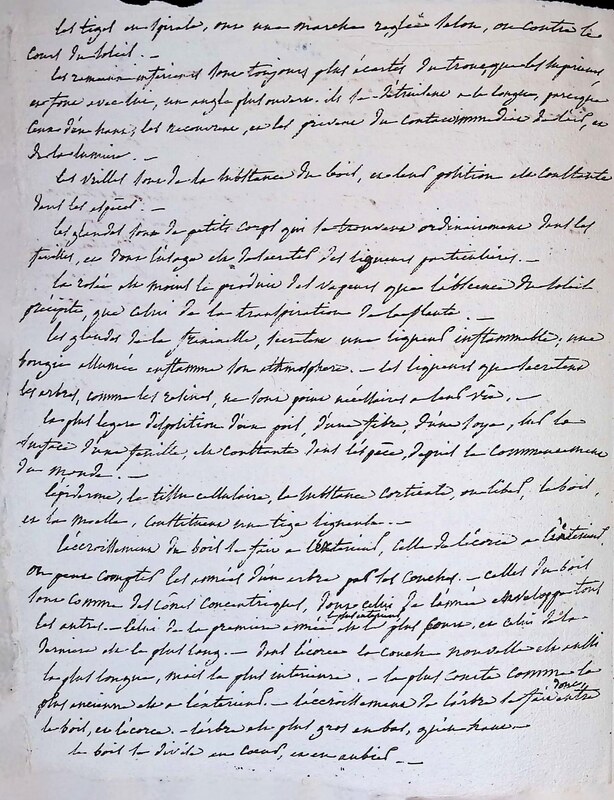 les tiges en spirale, ont une marche reglée selon, ou contre le
cours du soleil. —
les rameaux inferieurs sont toujours plus écartés du tronc, que les superieurs,
et font avec lui, un angle plus ouvert. ils se détruisent a la longue, parceque
ceux d'en haut, les recouvrent, et les privent du contact immediat de l'air, et
de la lumiere. —
les vrilles sont de la substance du bois, et leur position est constante
dans les especes. —
les glandes sont de petits corps qui se trouvent ordinairement dans les
feuilles, et dont l'usage est de secreter des liqueurs particulières. —
la rosée est moins le produit des vapeurs que l'absence du soleil
précipite, que celui de la transpiration de la plante. —
les glandes de la fraxinelle, secretent une liqueur inflammable, une
bougie allumée enflamme son athmosphere. — les liqueurs que secretent
les arbres, comme les resines, ne sont point nécessaires a leur vie. —
la plus legere disposition d'un poil, d'une fibre, d'une soye, sur la
surface d'une feuille, est constante dans l'espèce, depuis le commencement
du monde. —
l'épiderme, le tissu cellulaire, la substance corticale, ou liber, le bois,
et la moelle, constituent une tige ligneuse. —
l'accroissement du bois se fait a l'exterieur, celle de l'écorce a l'interieur.
on peut compter les années d'un arbre par ses couches. — celles du bois
sont comme des cônes concentriques, dont celui de l'année enveloppe tous
les autres. — celui de la premiere année est le plus court, et celui de la
derniere est le plus long. — dans l'écorce la couche nouvelle est aussi
la plus longue, mais la plus interieure. — la plus courte comme la
plus ancienne est a l'exterieur. — l'accroissement de l'arbre se fait donc entre
le bois, et l'écorce. — l'arbre est plus gros en bas, qu'en haut —
le bois se divise en coeur, et en aubier. —